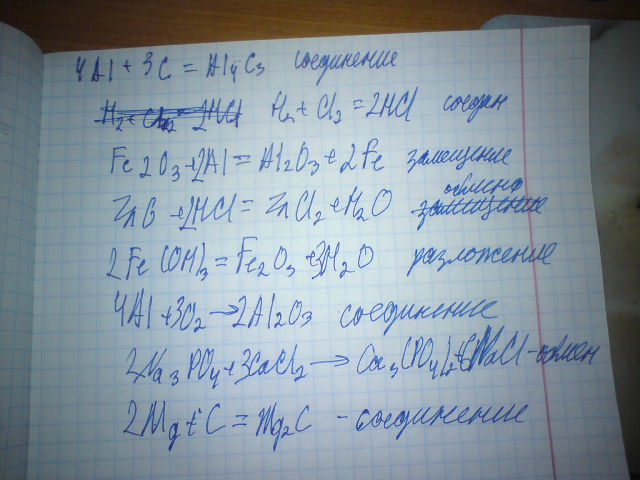 4Al + 3C = Al4C3 соединение
H2 + Cl2 = 2HCl H2 + Cl2 = 2HCl соедин
Fe2O3 + 2Al = Al2O3 + 2Fe замещение
обмена
ZnO + 2HCl = ZnCl2 + H2O замещение
2Fe(OH)3 = Fe2O3 + 3H2O разложение
4Al + 3O2 → 2Al2O3 соединение
2Na3PO4 + 3CaCl2 → Ca3(PO4)2 + 6NaCl - обмен
2Mg + C = Mg2C - соединение